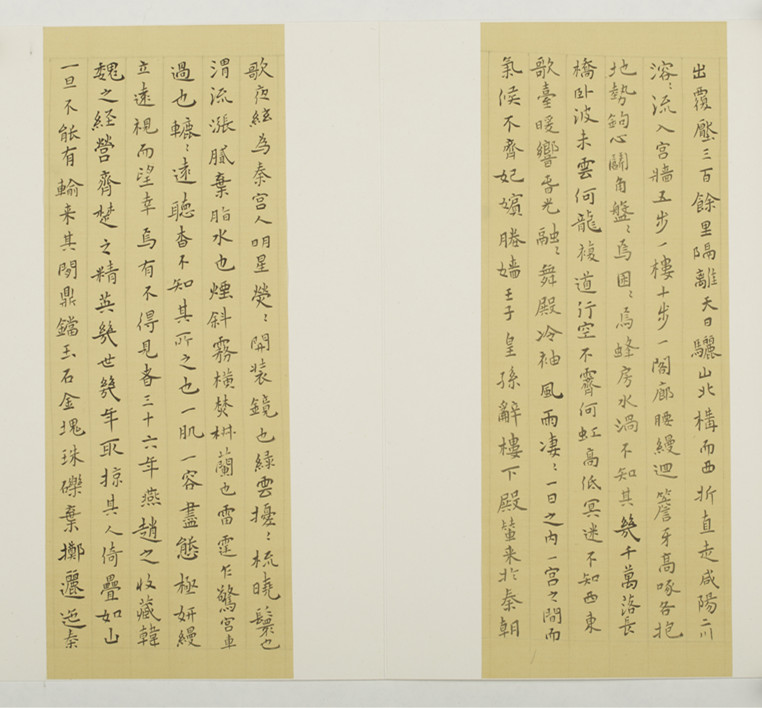 出覆壓三百餘里隔離天日驪山北構而西折直走咸陽二川
溶〻流入宮牆五步一樓十步一閣廊腰縵迴簷牙高啄各抱
地勢鉤心鬬角盤〻焉囷〻焉蜂房水渦不知其幾千萬落長
橋臥波未雲何龍複道行空不霽何虹高低冥迷不知西東
歌臺暖響春光融〻舞殿冷袖風雨凄〻一日之內一宮之間而
氣候不齊妃嬪媵嬙王子皇孫辭樓下殿輦来於秦朝
歌夜絃為秦宮人明星熒〻開裝鏡也緑雲擾〻梳曉鬟也
渭流漲膩棄脂水也煙斜霧橫焚椒蘭也雷霆乍驚宮車
過也轆〻遠聽杳不知其所之也一肌一容盡態極妍縵
立遠視而望幸焉有不得見者三十六年燕趙之收藏韓
魏之経營齊楚之精英幾世幾年取掠其人倚疊如山
一旦不能有輸来其間鼎鐺玉石金塊珠礫棄擲邐迤秦